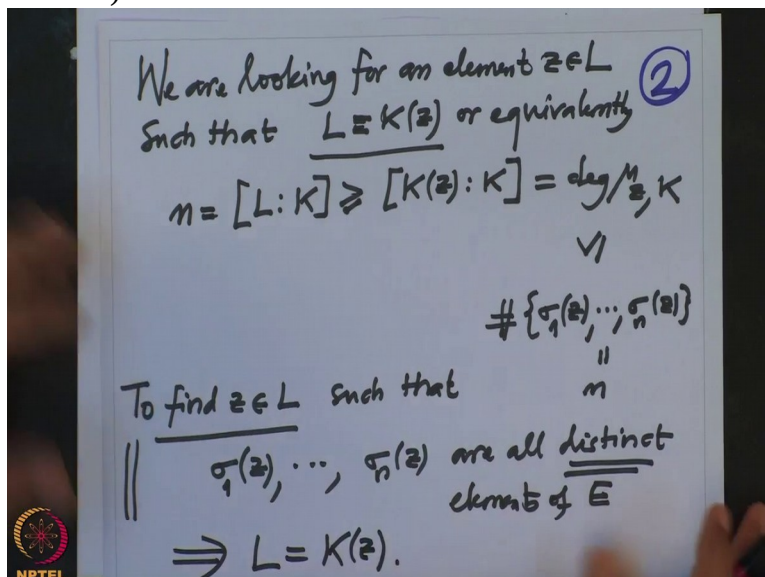 We are looking for an element z∈L
Such that L = K(z) or equivalently
②
n = [L:K] ⩾ [K(z):K] = deg μ_z,K
\/|
#{σ_1(z),⋯,σ_n(z)}
||
n
To find z∈L such that
σ_1(z),⋯, σ_n(z) are all distinct
elements of E
⟹ L = K(z).
NPTEL